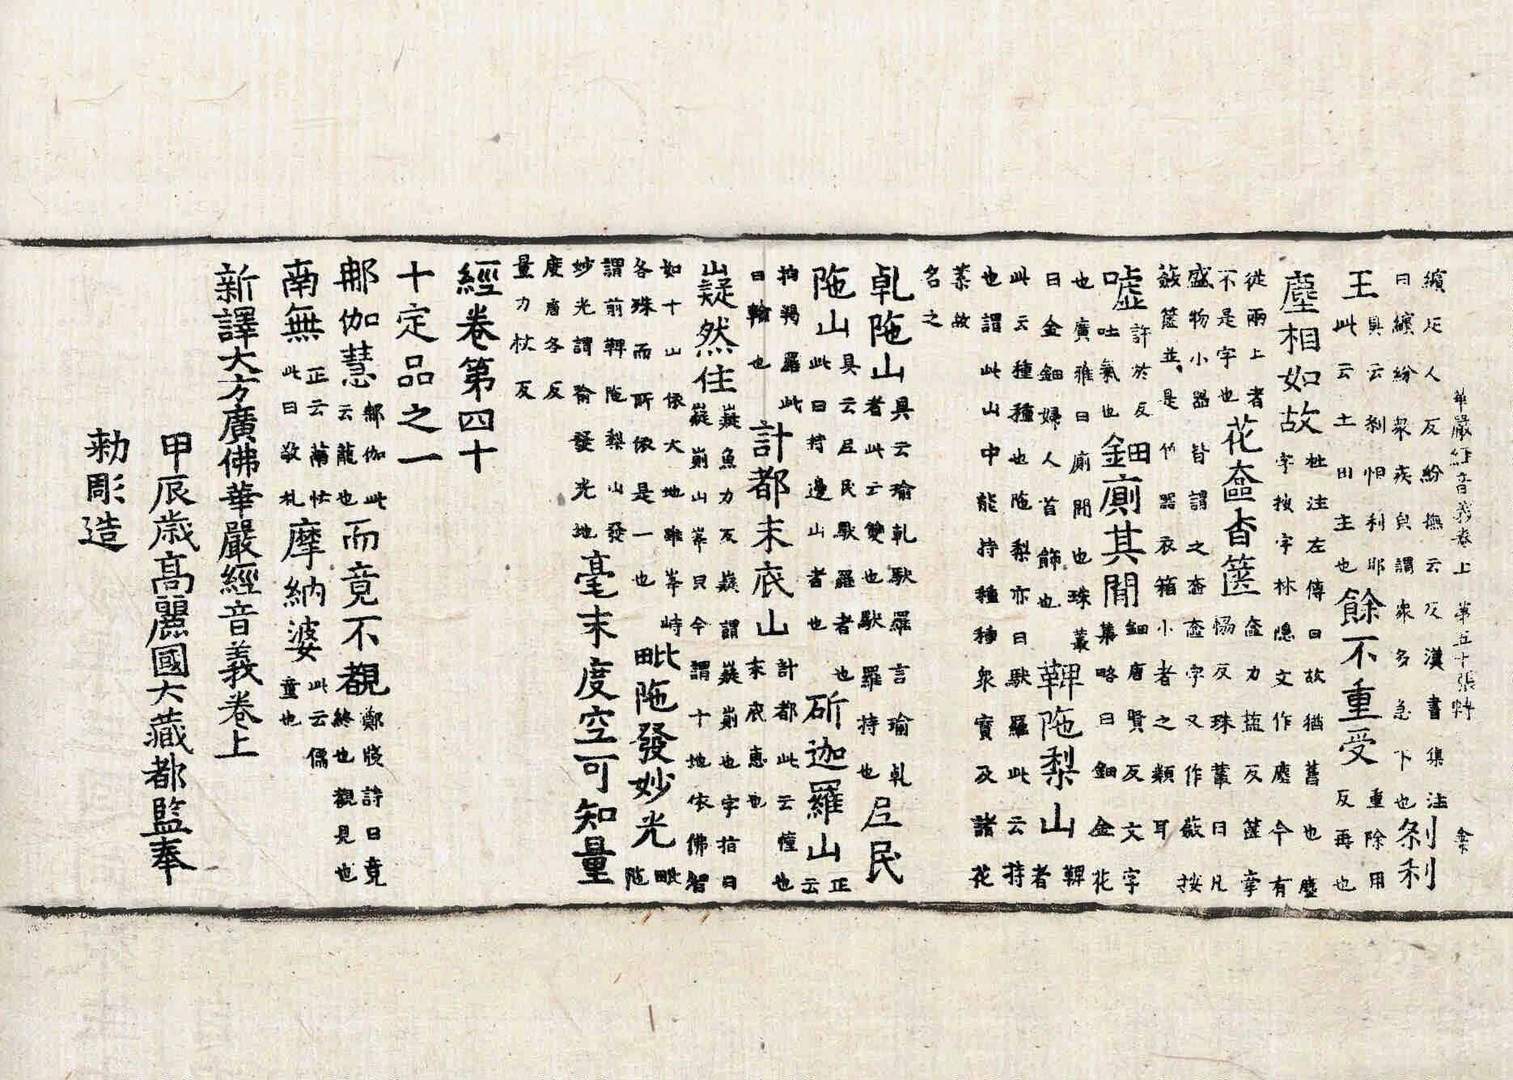 華嚴經音義卷上 第五十張 轉
繽疋人反紛撫云反漢書集注曰繽紛衆疾皃謂衆多急下也刹利
王具云刹怛利耶此云土田主也餘不重受重除用反再也
塵相如故杜注左傳曰故猶舊也塵字按字林隱文作塵今有
從兩上者不是字也花奩香篋奩力鹽反篋牽愜反珠叢曰凡
盛物小器皆謂之奩奩字又作籢按籢篋並是竹器衣箱小者之類耳
嘘許於反吐氣也鈿廁其間鈿唐賢反文字集略曰鈿金花
也廣雅曰廁間也珠叢曰金鈿婦人首飾也鞞陁梨山鞞者
此云種種也陁梨亦曰馱羅此云持也謂此山中能持種種衆寳及諸花
菓故名之
乹陁山具云瑜乹馱羅言瑜乹者此云雙也馱羅持也尼民
陁山具云尼民馱羅者也此曰持邊山者也斫迦羅山正云
拘羯羅此曰輪也計都末底山計都此云憧也末底惠也
嶷然住嶷魚力反嶷謂嶷崱也字指曰嶷崱山峯皃今謂十地依佛智
如十山依大地雖峯峙各殊而所依是一也毗陁發妙光毗陁
謂前鞞陁梨山發妙光謂喻發光地毫末度空可知量
度唐各反量力杖反
經卷第四十
十定品之一
那伽慧那伽此云龍也而竟不覩鄭牋詩曰竟終也覩見也
南無正云蕅忙此曰敬礼摩納婆此云儒童也
新譯大方廣佛華嚴經音義卷上
甲辰歲髙麗國大藏都監奉
勑彫造